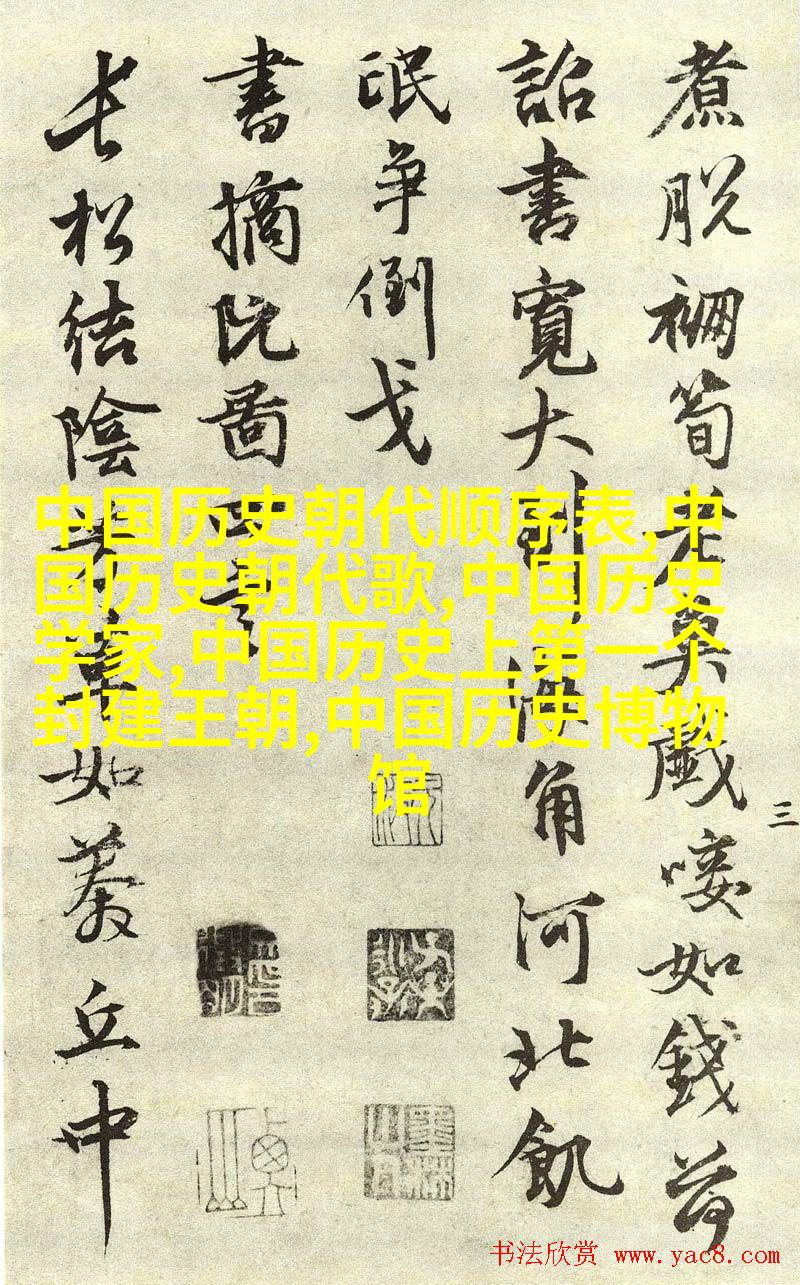 煮脱筍老莫如錢荷
詔書寬大到角河北飢
氓争倒戈
書摘阮圖
長松結陰如丘中
三
中国历史朝代顺序表,中
国历史朝代歌,中国历史
学家,中国历史上第一个
封建王朝,中国历史博物
馆
书法欣赏 www.yac8.com